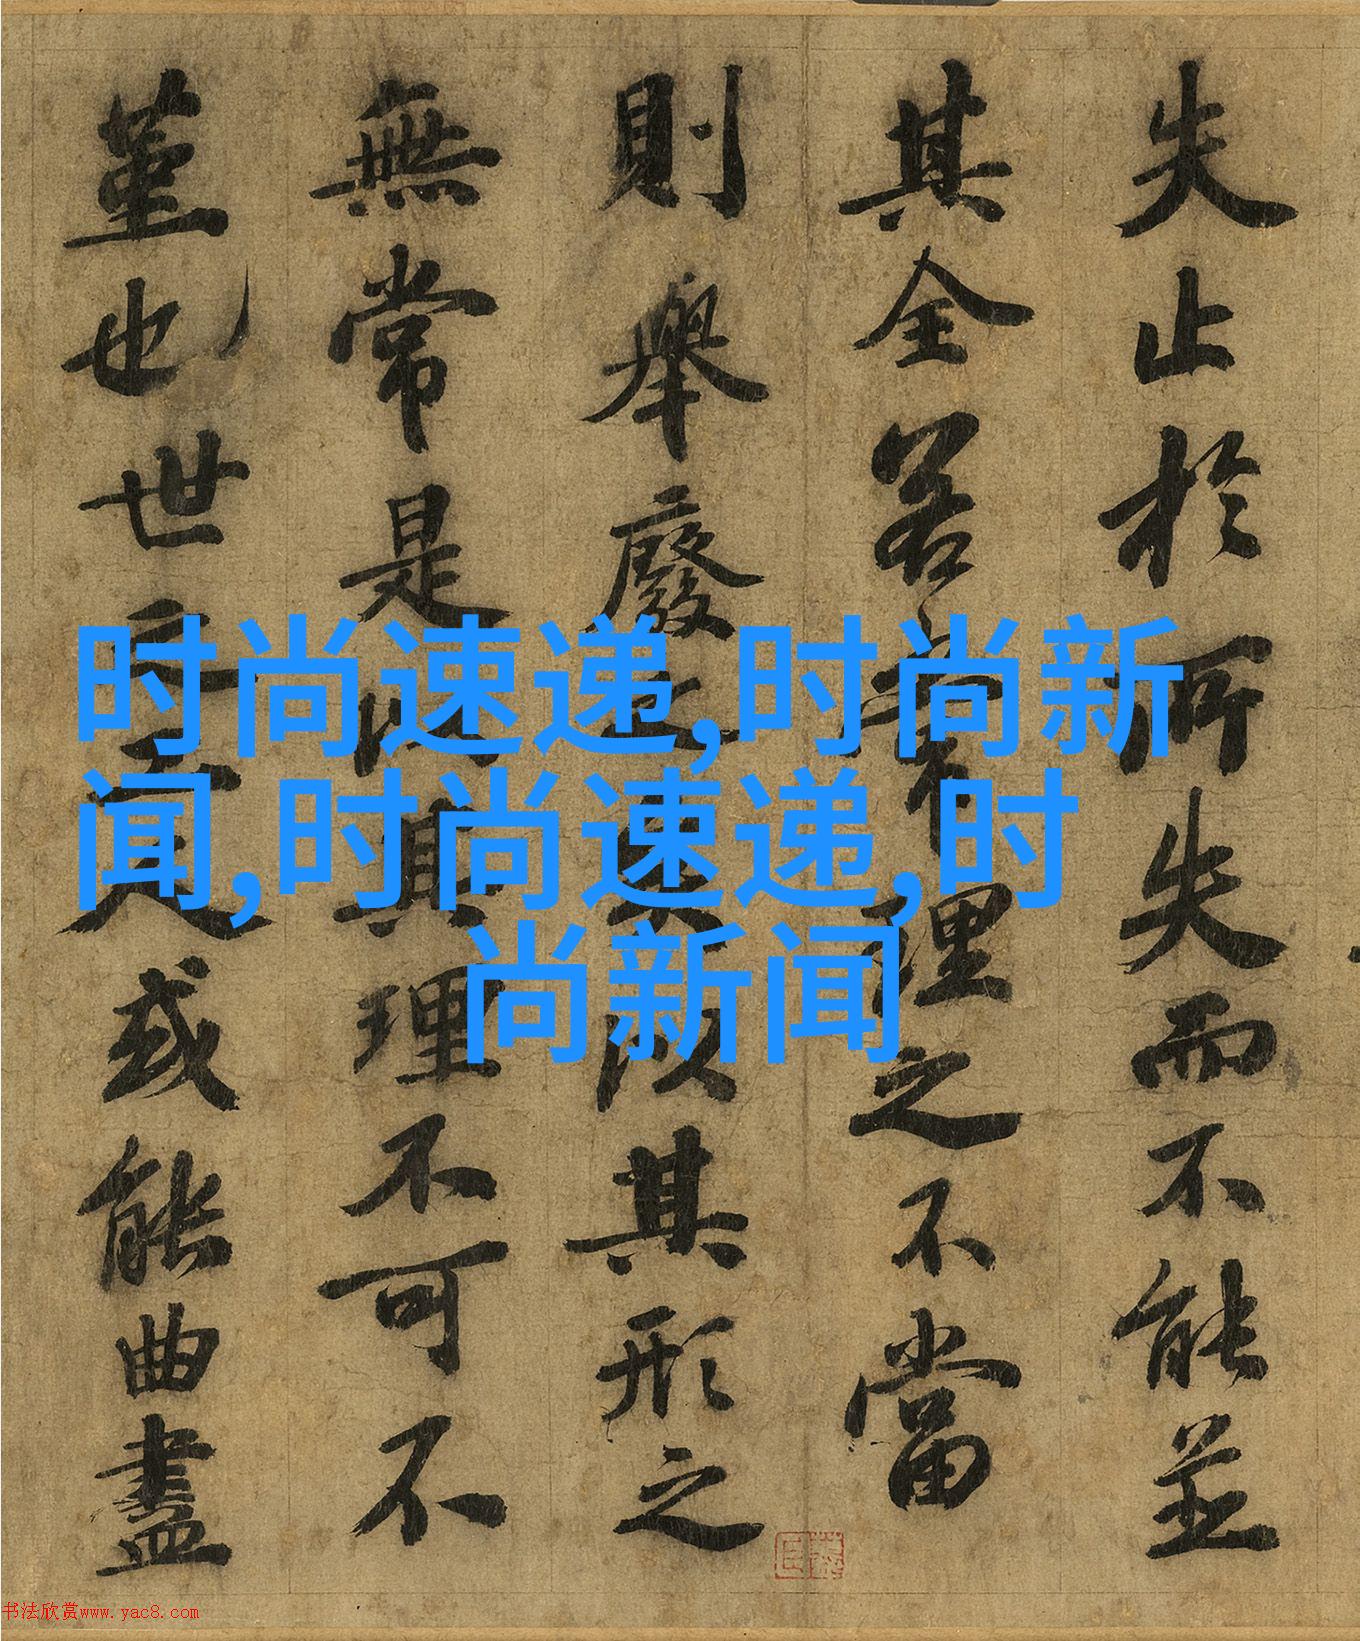 失止於所失而不能並
其全若常理之不當
則舉廢之矣以其形之
無常是以其理不可不
堇也世之工人或能曲盡
时尚速递,时尚新
闻,时尚速递,时
尚新闻
书法欣赏www.yac8.com